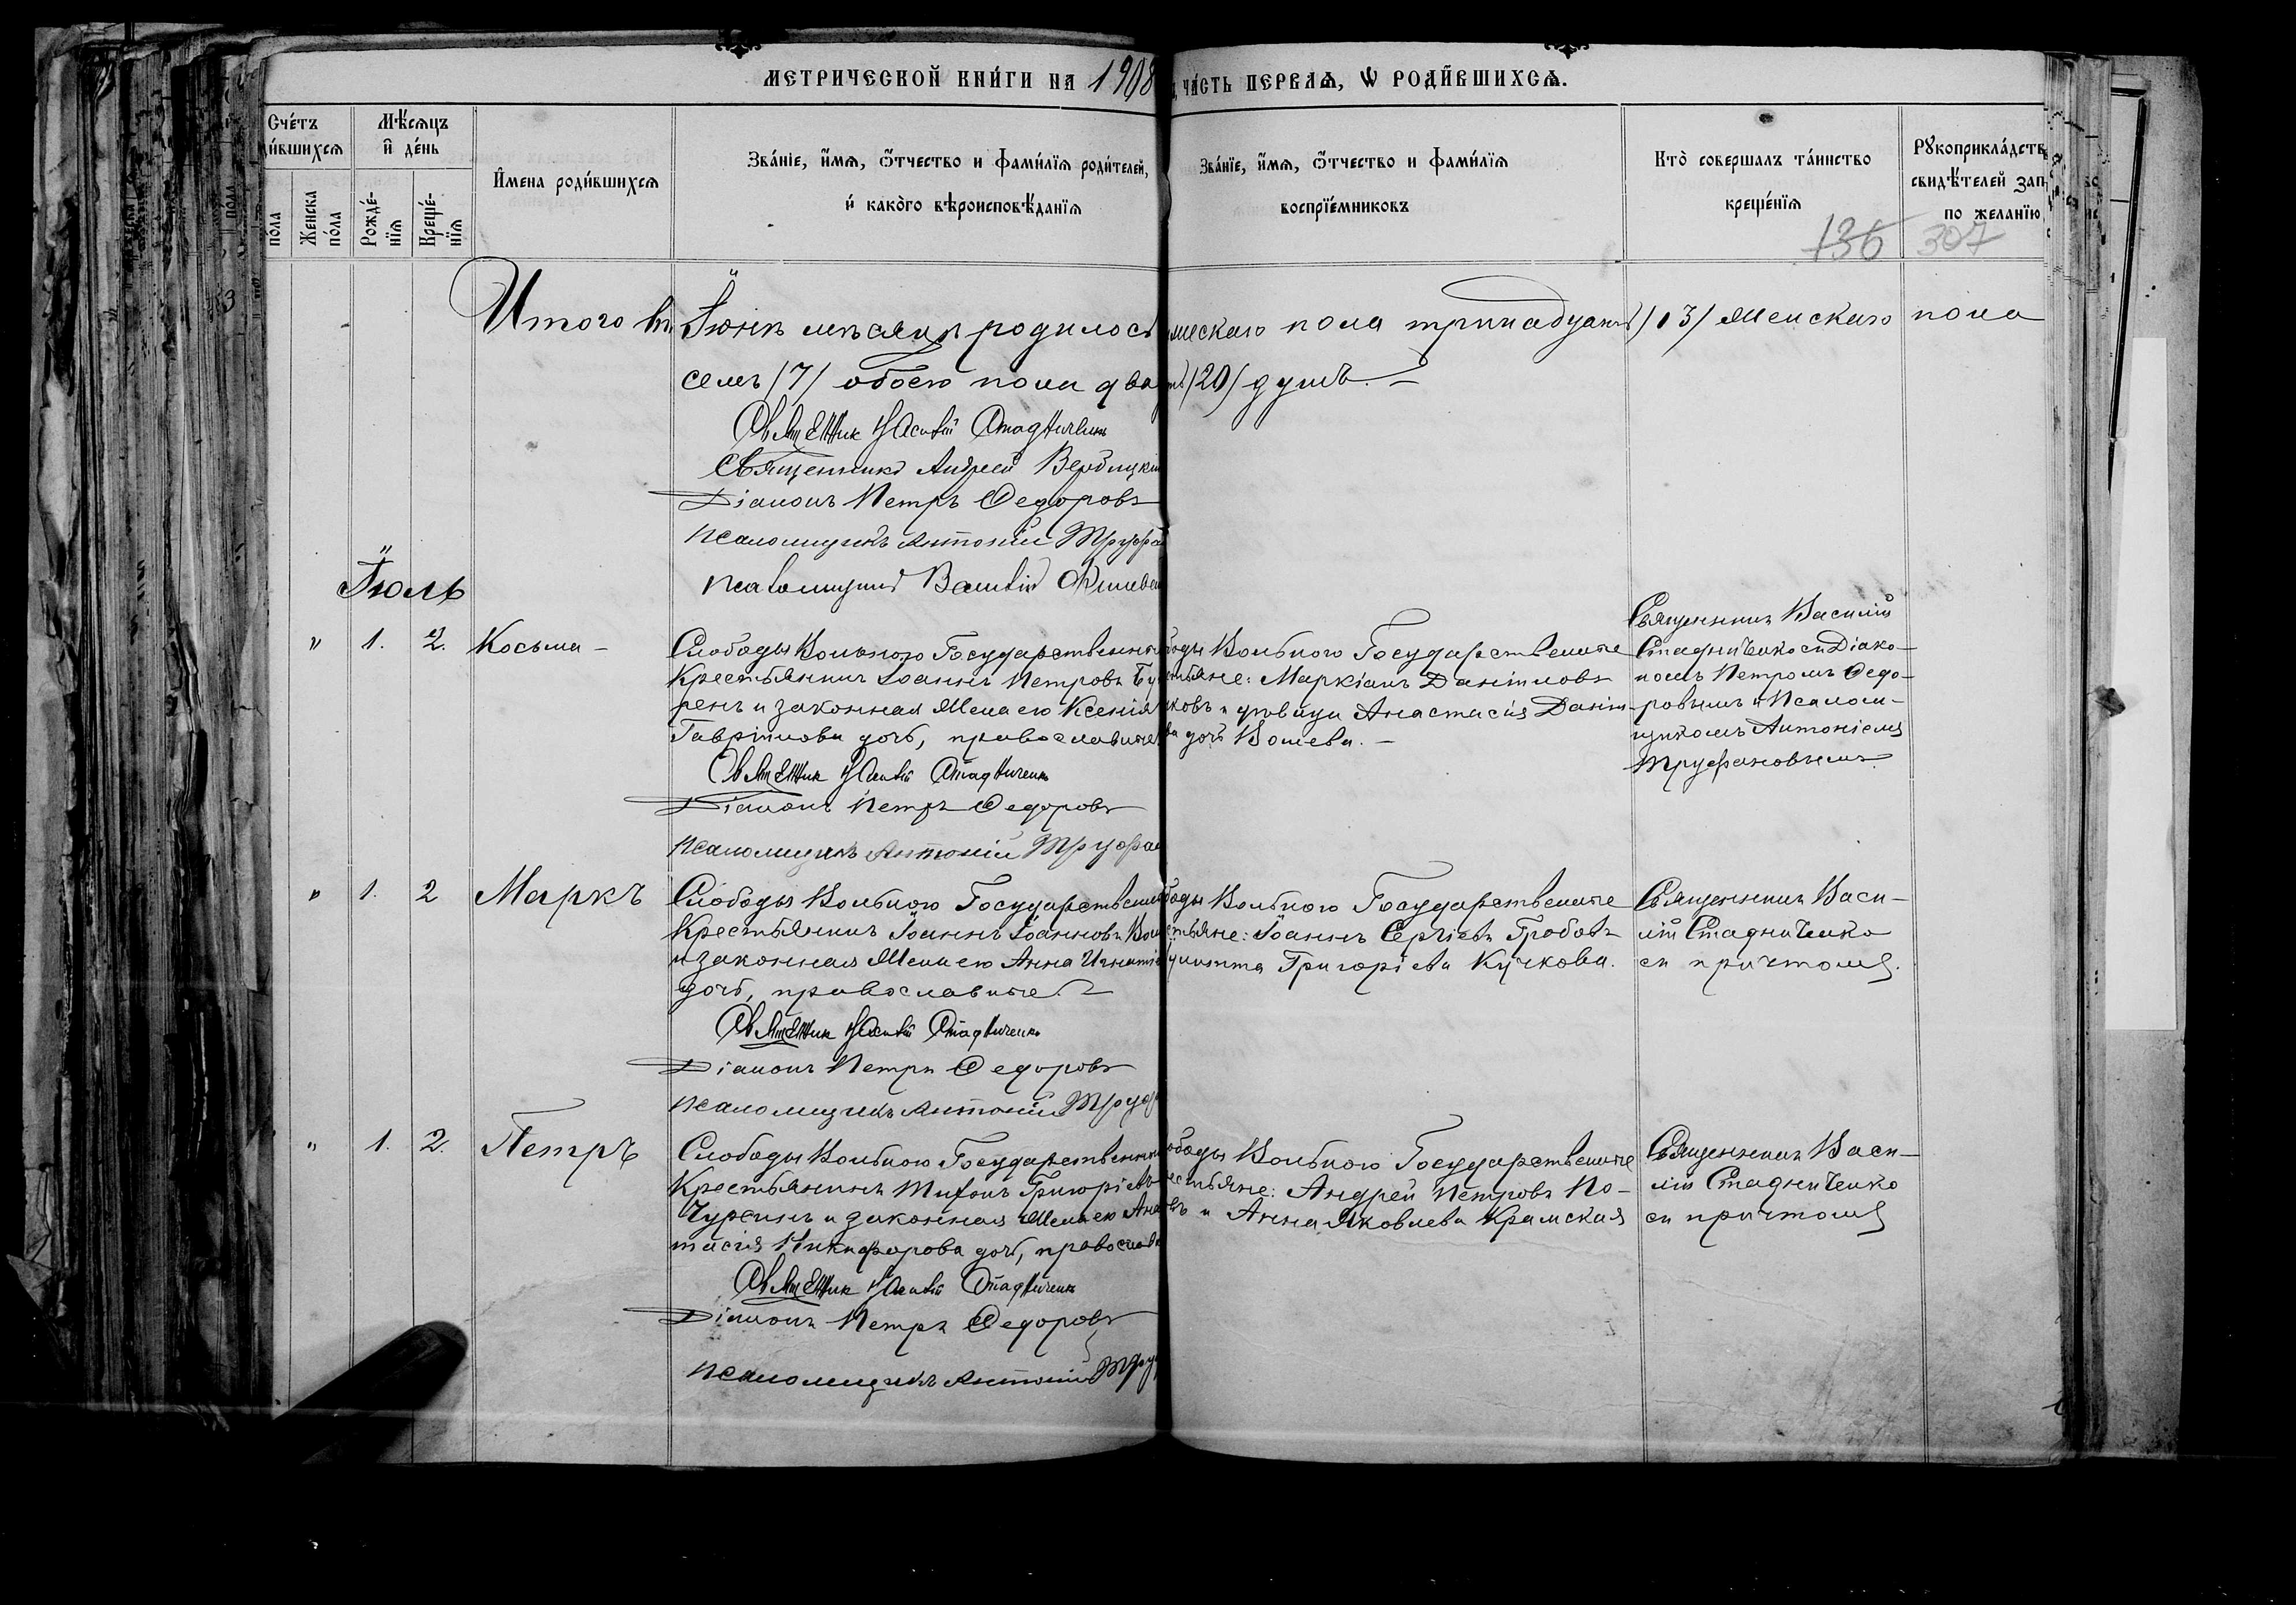 МЕТРИЧЕСКОЙ КНИ́ГИ НА 1908
ЧА́СТЬ ПЕРВАѦ, Ѡ РОДИ́ВШИХСѦ.
Сче́тъ
ди́вшихсѧ
Мѣ́сѧцъ
и҆ де́нь
И҆мена роди́вшихсѧ
Зва́нїе, и҆́мѧ, ѻ҆́тчество и фами́лїѧ роди́телей,
и҆ како́го вѣроисповѣ́данїѧ
Зва́нїе, и҆́мѧ, ѻ҆́тчество и фами́лїѧ
воспрїе́мниковъ
Кто̀ совершалъ та́инство
креще́нїѧ
Рꙋкоприкла́дств
свидѣ́телей зап
по желанїю
по́ла
Женска
по́ла
Рожде́-
нїѧ
Креще́-
нїѧ
136 307
Итого въ Іюнѣ мѣсяцѣ родилось мужескаго пола тринадцать /13/ женскаго пола
семь /7/ обоего пола два /20/ душъ.
Священник Василій Стадниченко
Священникъ Андрей Вербицкій
Діаконъ Петръ Ѳедоровъ
Псаломщикъ Антоній Труфа
Псаломщикъ
Іюль
" 1. 2. Косьма –
Слободы Вольного Государственный
Крестьянинъ Іоаннъ Петровъ Бу
ренъ и законная жена его Ксенія
Гавріилова дочь, православные
Священник Василій Стадниченко
Діаконъ Петръ Ѳедоровъ
Псаломщикъ Антоній Труфа
боды Вольного Государственные
стьяне: Маркіанъ Даніиловъ
ковъ и дѣвица Анастасія Даніи-
ва дочь Вошева. –
Священникъ Василій
Стадниченко съ Діако-
номъ Петромъ Ѳедо-
ровымъ и Псалом-
щикомъ Антоніемъ
Труфановымъ
" 1. 2 Маркъ
Слободы Вольного Государственный
Крестьянинъ Іоаннъ Іоанновъ Вош
и законная жена его Анна Игнатіе
дочь, православные.
Священник Василій Стадниченко
Діаконъ Петръ Ѳедоровъ
Псаломщикъ Антоній Труф
боды Вольного Государственные
стьяне: Іоаннъ Сергіевъ Гробовъ
улитта Григоріева Кучкова.
Священникъ Васи-
лій Стадниченко
съ причтомъ.
" 1. 2. Петръ
Слободы Вольного Государственный
Крестьянинъ Тихонъ Григорьевъ
Чуринъ и законная жена его Анас
тасія Никифорова дочь, правосла
Священник Василій Стадниченко
Діаконъ Петръ Ѳедоровъ
Псаломщикъ Антоній Тру
ободы Вольного Государственные
естьяне: Андрей Петровъ По-
въ и Анна Яковлева Крамская
Священникъ Васи-
лій Стадниченко
съ причтомъ